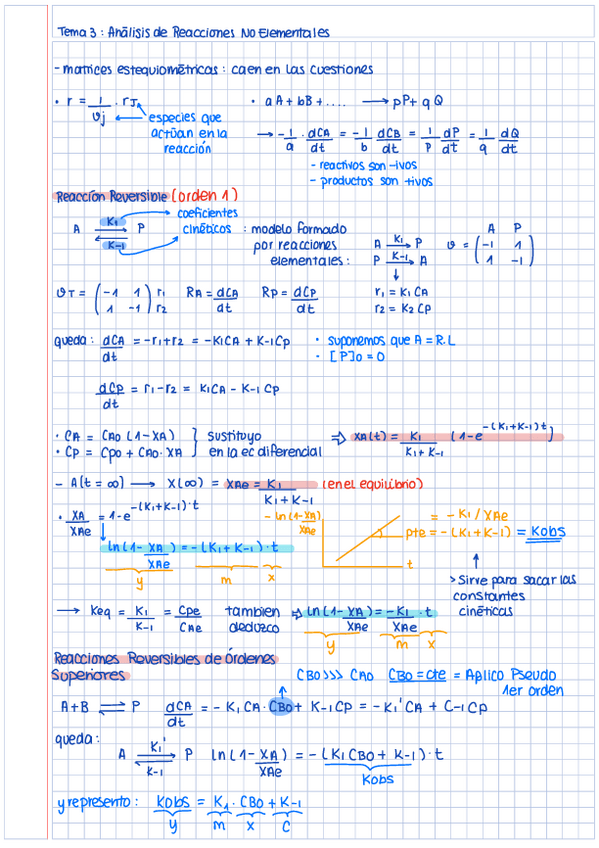 Tema 3 : Análisis de Reacciones No Elementales
- matrices estequiométricas : caen en las cuestiones
• r = 1/νj · rJ → especies que actúan en la reacción
• aA + bB + .... → pP + qQ
→ -1/a · dCA/dt = -1/b dCB/dt = 1/p dP/dt = 1/q dQ/dt
- reactivos son -ivos
- productos son +ivos
Reacción Reversible (orden 1)
A ⇌ P K1 K-1 → coeficientes cinéticos : modelo formado por reacciones elementales :
A K1→ P
P K-1→ A
↓
r1 = K1 CA
r2 = K2 CP
A P
ν = (-1 1
1 -1)
νT = (-1 1
1 -1) r1 r2
RA = dCA/dt RP = dCP/dt
queda : dCA/dt = -r1+r2 = -K1CA + K-1CP
• suponemos que A = R.L
• [P]0 = 0
dCP/dt = r1 - r2 = K1CA - K-1CP
• CA = CA0 (1-XA)
• CP = CP0 + CA0· XA
} sustituyo en la ec diferencial
⇒ XA(t) = K1/K1+K-1 (1-e^-(K1+K-1)t)
- A(t = ∞) → X(∞) = XAe = K1/K1+K-1 (en el equilibrio)
• XA/XAe = 1-e^-(K1+K-1)·t
ln(1-XA/XAe) = -(K1+K-1)·t
y m x
-ln(1-XA/XAe)
t
= -K1/XAe
pte = -(K1+K-1) = Kobs
↑
> Sirve para sacar las constantes cinéticas
→ Keq = K1/K-1 = CPe/CAe tambien deduzco ⇒ ln(1-XA/XAe) = -K1/XAe · t
y m x
Reacciones Reversibles de Órdenes Superiores
CB0 >>> CA0 CB0 = cte = Aplico Pseudo 1er orden
A+B ⇌ P dCA/dt = - K1CA·CB0 + K-1CP = -K1'CA + C-1CP
queda :
A ⇌ P K1' K-1 ln(1-XA/XAe) = -(K1CB0 + K-1)·t
Kobs
y represento : Kobs = K1 · CB0 + K-1
y m x c